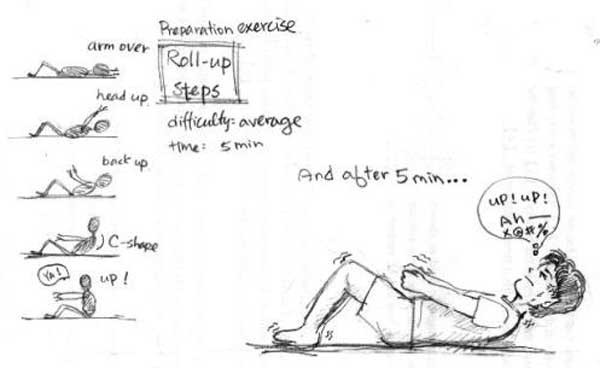 Preparation exercise
Roll-up
steps
difficulty: average
time: 5 min
arm over
head up
back up
C-shape
YA!
up!
And after 5 min...
up! up!
Ah—
x@#%